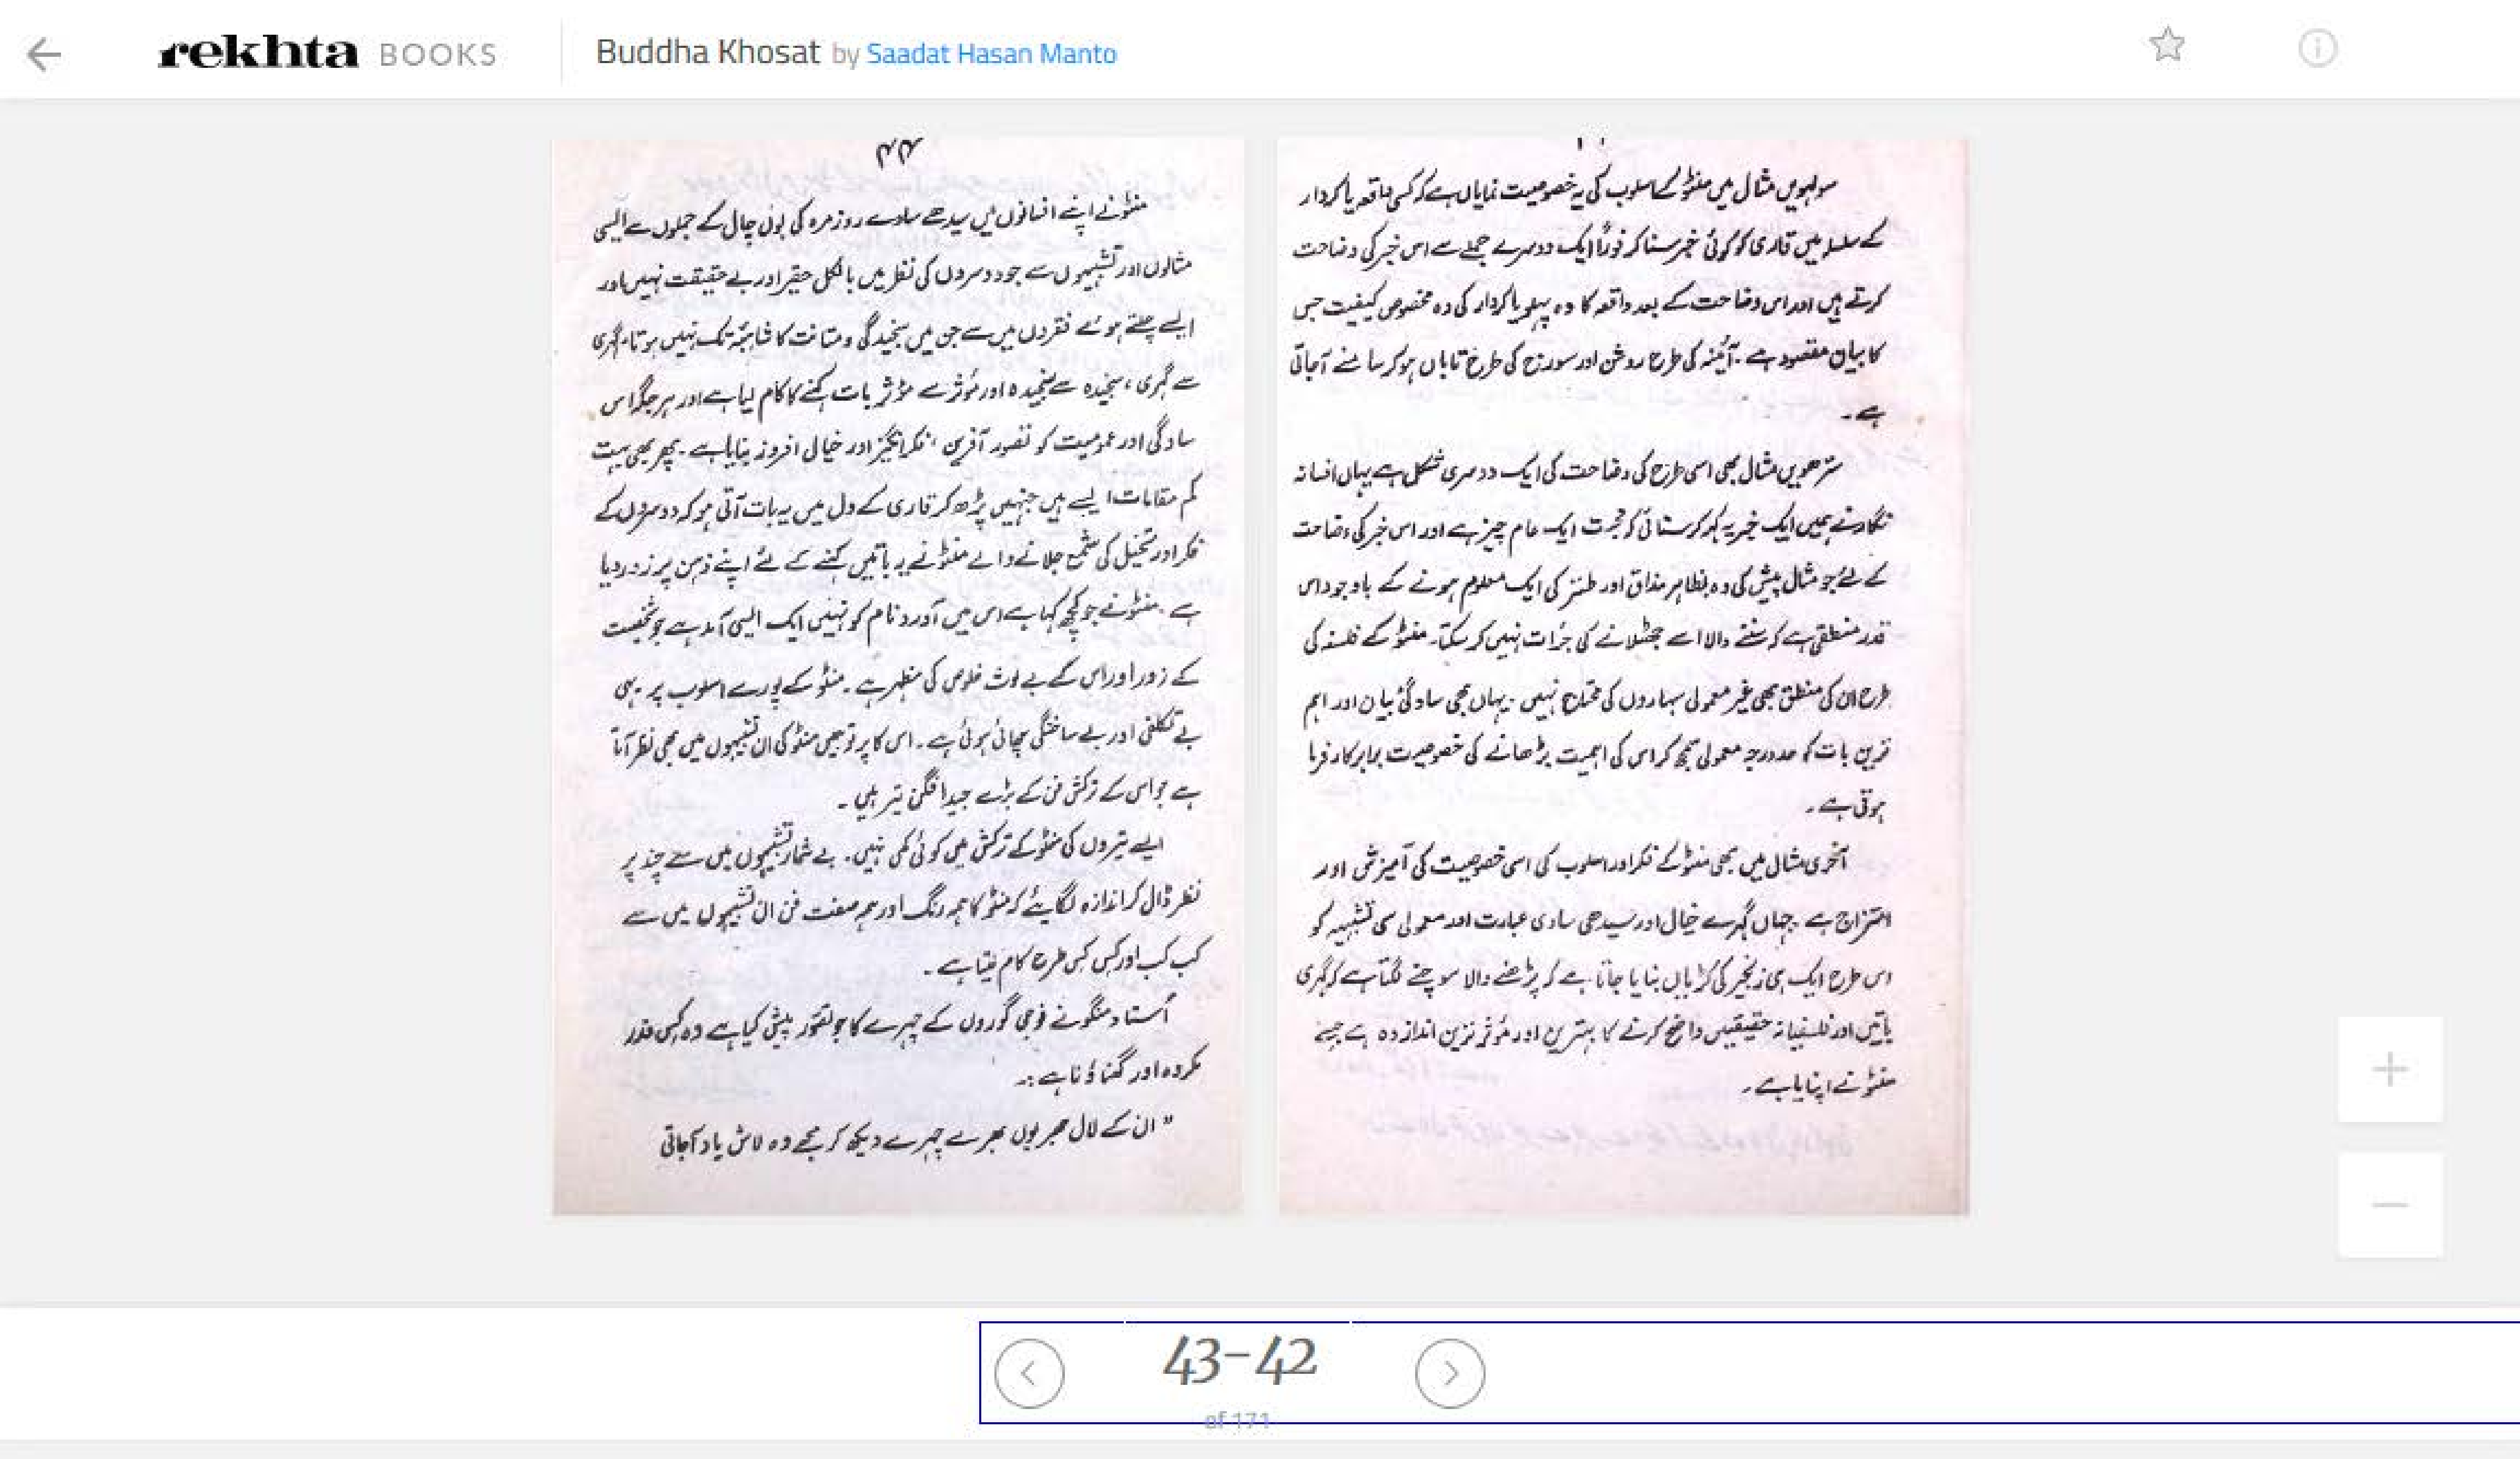 rekhta BOOKS
Buddha Khosat by Saadat Hasan Manto
سولہویں مثال میں منٹو کے اسلوب کی یہ خصوصیت نمایاں ہے کہ کسی واقعہ یا کردار
کے سلسلہ میں قاری کو کوئی خبر سنا کر فوراً ایک دوسرے جملے سے اس خبر کی وضاحت
کرتے ہیں اور اس وضاحت کے بعد واقعہ کا وہ پہلو یا کردار کی وہ مخصوص کیفیت جس
کا بیان مقصود ہے۔ آئینہ کی طرح روشن اور سورج کی طرح تاباں ہو کر سامنے آجاتی
ہے۔
سترھویں مثال بھی اسی طرح کی وضاحت کی ایک دوسری شکل ہے یہاں افسانہ
نگار نے ہمیں ایک خبر یہ کہہ کر سنائی کہ محبت ایک عام چیز ہے اور اس خبر کی وضاحت
کے لئے جو مثال پیش کی وہ بظاہر مذاق اور طنز کی ایک معلوم ہونے کے باوجود اس
قدر منطقی ہے کہ سننے والا اسے جھٹلانے کی جرأت نہیں کر سکتا۔ منٹو کے فلسفہ کی
طرح ان کی منطق بھی غیر معمولی سہاروں کی محتاج نہیں۔ یہاں بھی سادگیٔ بیان اور اہم
ترین بات کو حد درجہ معمولی سمجھ کر اس کی اہمیت بڑھانے کی خصوصیت برابر کار فرما
ہوتی ہے۔
آخری مثال میں بھی منٹو کے فکر اور اسلوب کی اسی خصوصیت کی آمیزش اور
امتزاج ہے۔ جہاں گہرے خیال اور سیدھی سادی عبارت اور معمولی سی تشبیہہ کو
اس طرح ایک ہی زنجیر کی کڑیاں بنایا جاتا ہے کہ پڑھنے والا سوچنے لگتا ہے کہ گہری
باتیں اور فلسفیانہ حقیقتیں واضح کرنے کا بہترین اور مؤثر ترین انداز وہ ہے جسے
منٹو نے اپنایا ہے۔
۴۴
منٹو نے اپنے افسانوں میں سیدھے سادے روزمرہ کی بول چال کے جملوں سے ایسی
مثالوں اور تشبیہوں سے جو دوسروں کی نظر میں بالکل حقیر اور بے حقیقت نہیں اور
ایسے چلتے ہوئے فقروں میں سے جن میں سنجیدگی و متانت کا شائبہ تک نہیں ہوتا، گہری
سے گہری، سنجیدہ سے سنجیدہ اور مؤثر سے مؤثر بات کہنے کا کام لیا ہے اور ہر جگہ اس
سادگی اور عمومیت کو تصور آفرین، فکر انگیز اور خیال افروز بنایا ہے۔ پھر بھی بہت
کم مقامات ایسے ہیں جنہیں پڑھ کر قاری کے دل میں یہ بات آتی ہو کہ دوسروں کے
فکر اور تخیل کی شمع جلانے والے منٹو نے یہ باتیں کہنے کے لئے اپنے ذہن پر زور دیا
ہے۔ منٹو نے جو کچھ کہا ہے اس میں آورد نام کو نہیں ایک ایسی آمد ہے جو شخصیت
کے زور اور اس کے بے لوث خلوص کی مظہر ہے۔ منٹو کے پورے اسلوب پر یہی
بے تکلفی اور بے ساختگی چھائی ہوئی ہے۔ اس کا پرتو ہمیں منٹو کی ان تشبیہوں میں بھی نظر آتا
ہے جو اس کے ترکش فن کے بڑے صید افگن تیر ہیں۔
ایسے تیروں کی منٹو کے ترکش میں کوئی کمی نہیں۔ بے شمار تشبیہوں میں سے چند پر
نظر ڈال کر اندازہ لگایئے کہ منٹو کا ہمہ رنگ اور ہمہ صفت فن ان تشبیہوں میں سے
کب کب اور کس کس طرح کام لیتا ہے۔
اُستاد منگو نے فوجی گوروں کے چہرے کا جو تصور پیش کیا ہے وہ کس قدر
مکروہ اور گھناؤنا ہے:۔
"ان کے لال جھریوں بھرے چہرے دیکھ کر مجھے وہ لاش یاد آجاتی
43-42
of 171